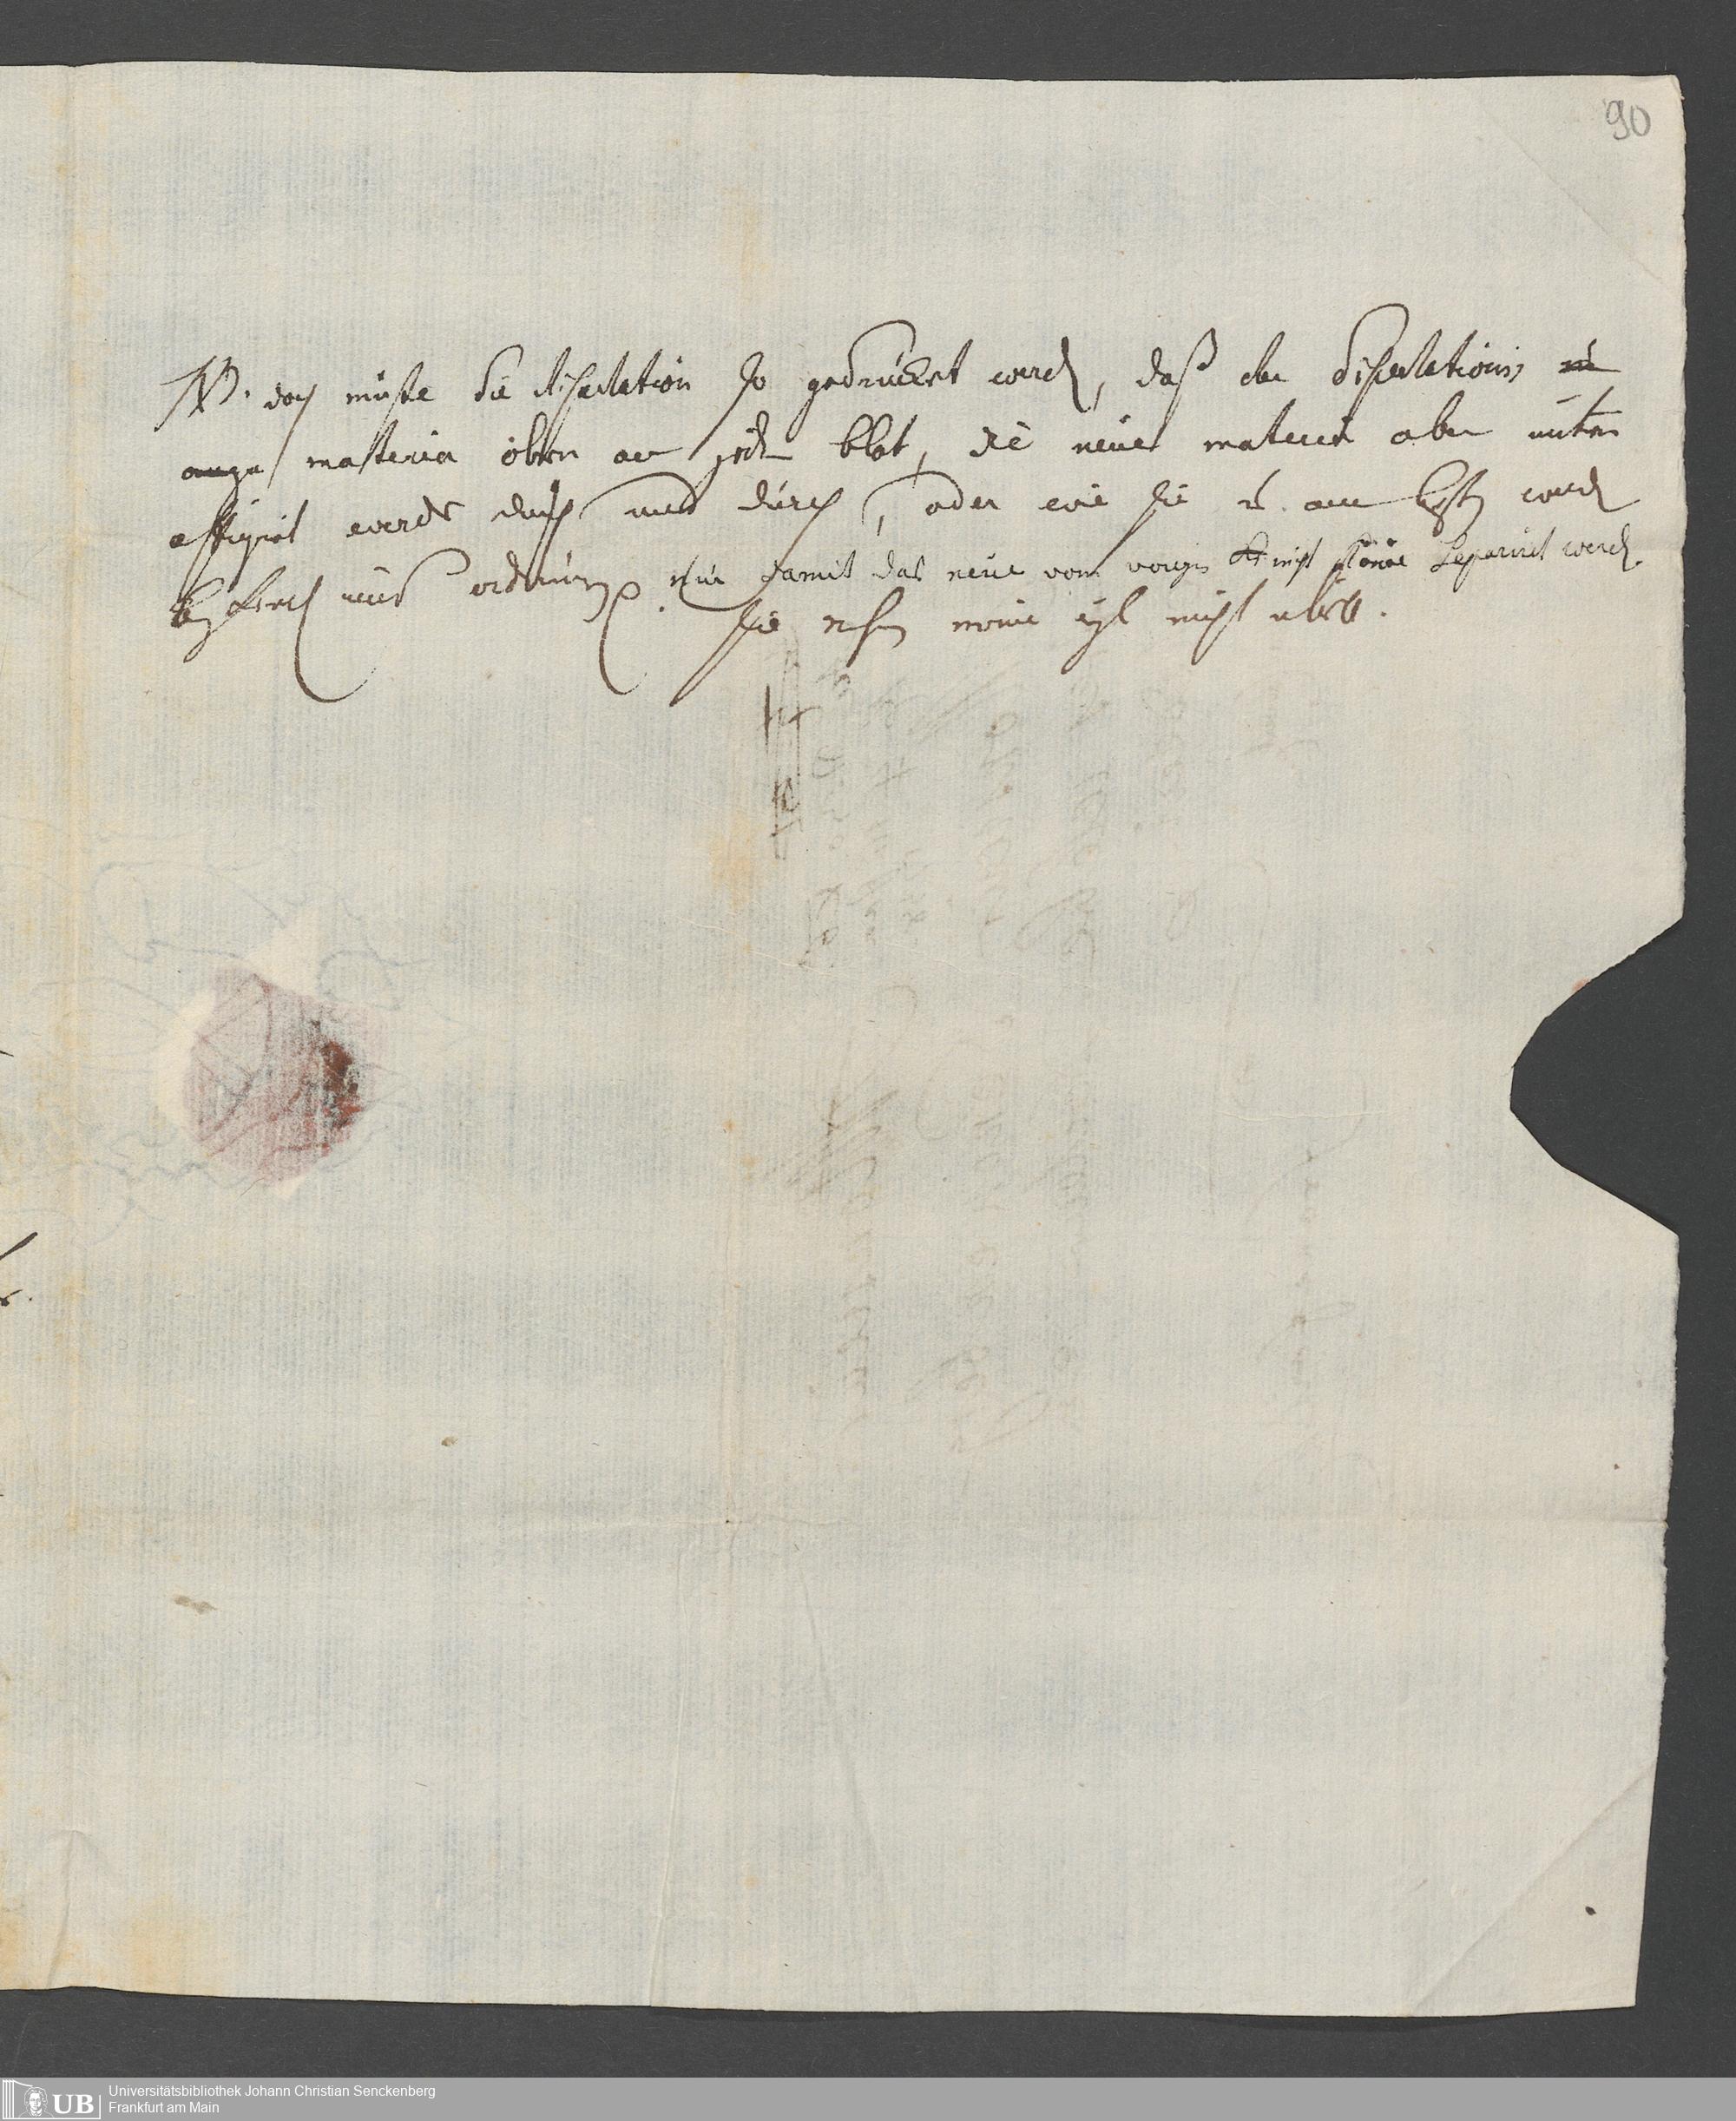 90
NB. doch müste die disputation so gedrucket werd, daß der disputations
materia oben an jedem blat, die neue materia aber unten
affigirt werde durch und durch, oder wie sie es am besten werd
und ordnung. nur damit das neue vom vorign nicht separirt werd.
Sie nehmen meine eyl nicht übel.
Universitätsbibliothek Johann Christian Senckenberg
Frankfurt am Main
UB